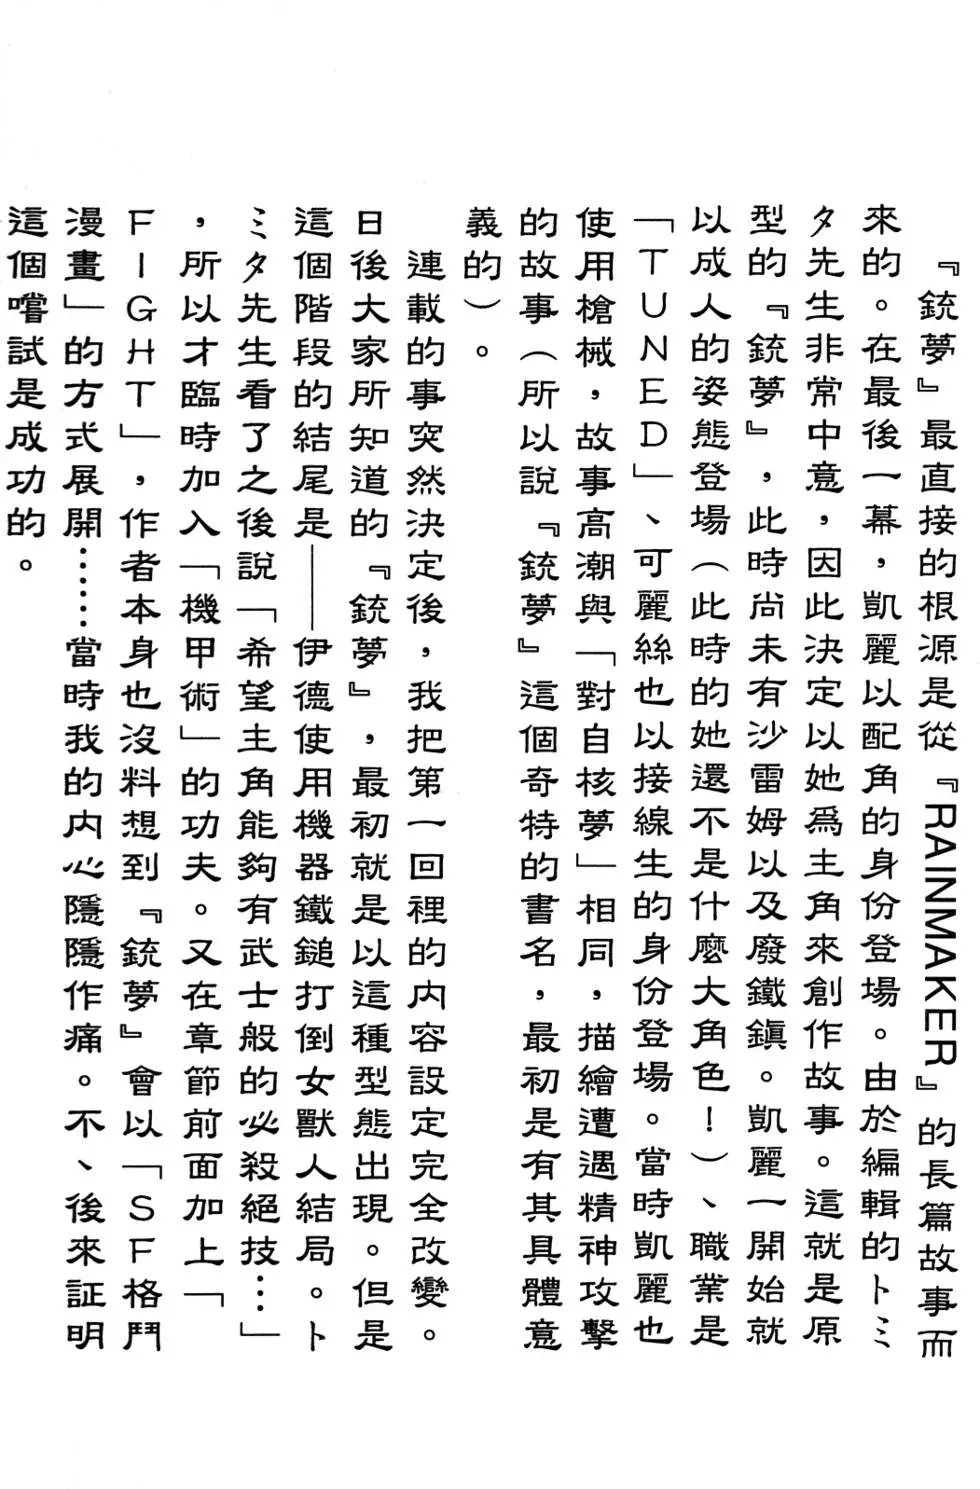 『銃夢』最直接的根源是從『RAINMAKER』的長篇故事而
來的。在最後一幕，凱麗以配角的身份登場。由於編輯的トミ
タ先生非常中意，因此決定以她爲主角來創作故事。這就是原
型的『銃夢』，此時尚未有沙雷姆以及廢鐵鎭。凱麗一開始就
以成人的姿態登場（此時的她還不是什麼大角色！）、職業是
「TUNED」、可麗絲也以接線生的身份登場。當時凱麗也
使用槍械，故事高潮與「對自核夢」相同，描繪遭遇精神攻擊
的故事（所以說『銃夢』這個奇特的書名，最初是有其具體意
義的）。
連載的事突然決定後，我把第一回裡的内容設定完全改變。
日後大家所知道的『銃夢』，最初就是以這種型態出現。但是
這個階段的結尾是——伊德使用機器鐵鎚打倒女獸人結局。ト
ミタ先生看了之後說「希望主角能夠有武士般的必殺絕技…」
，所以才臨時加入「機甲術」的功夫。又在章節前面加上「
FIGHT」，作者本身也沒料想到『銃夢』會以「SF格鬥
漫畫」的方式展開……當時我的内心隱隱作痛。不、後來証明
這個嚐試是成功的。